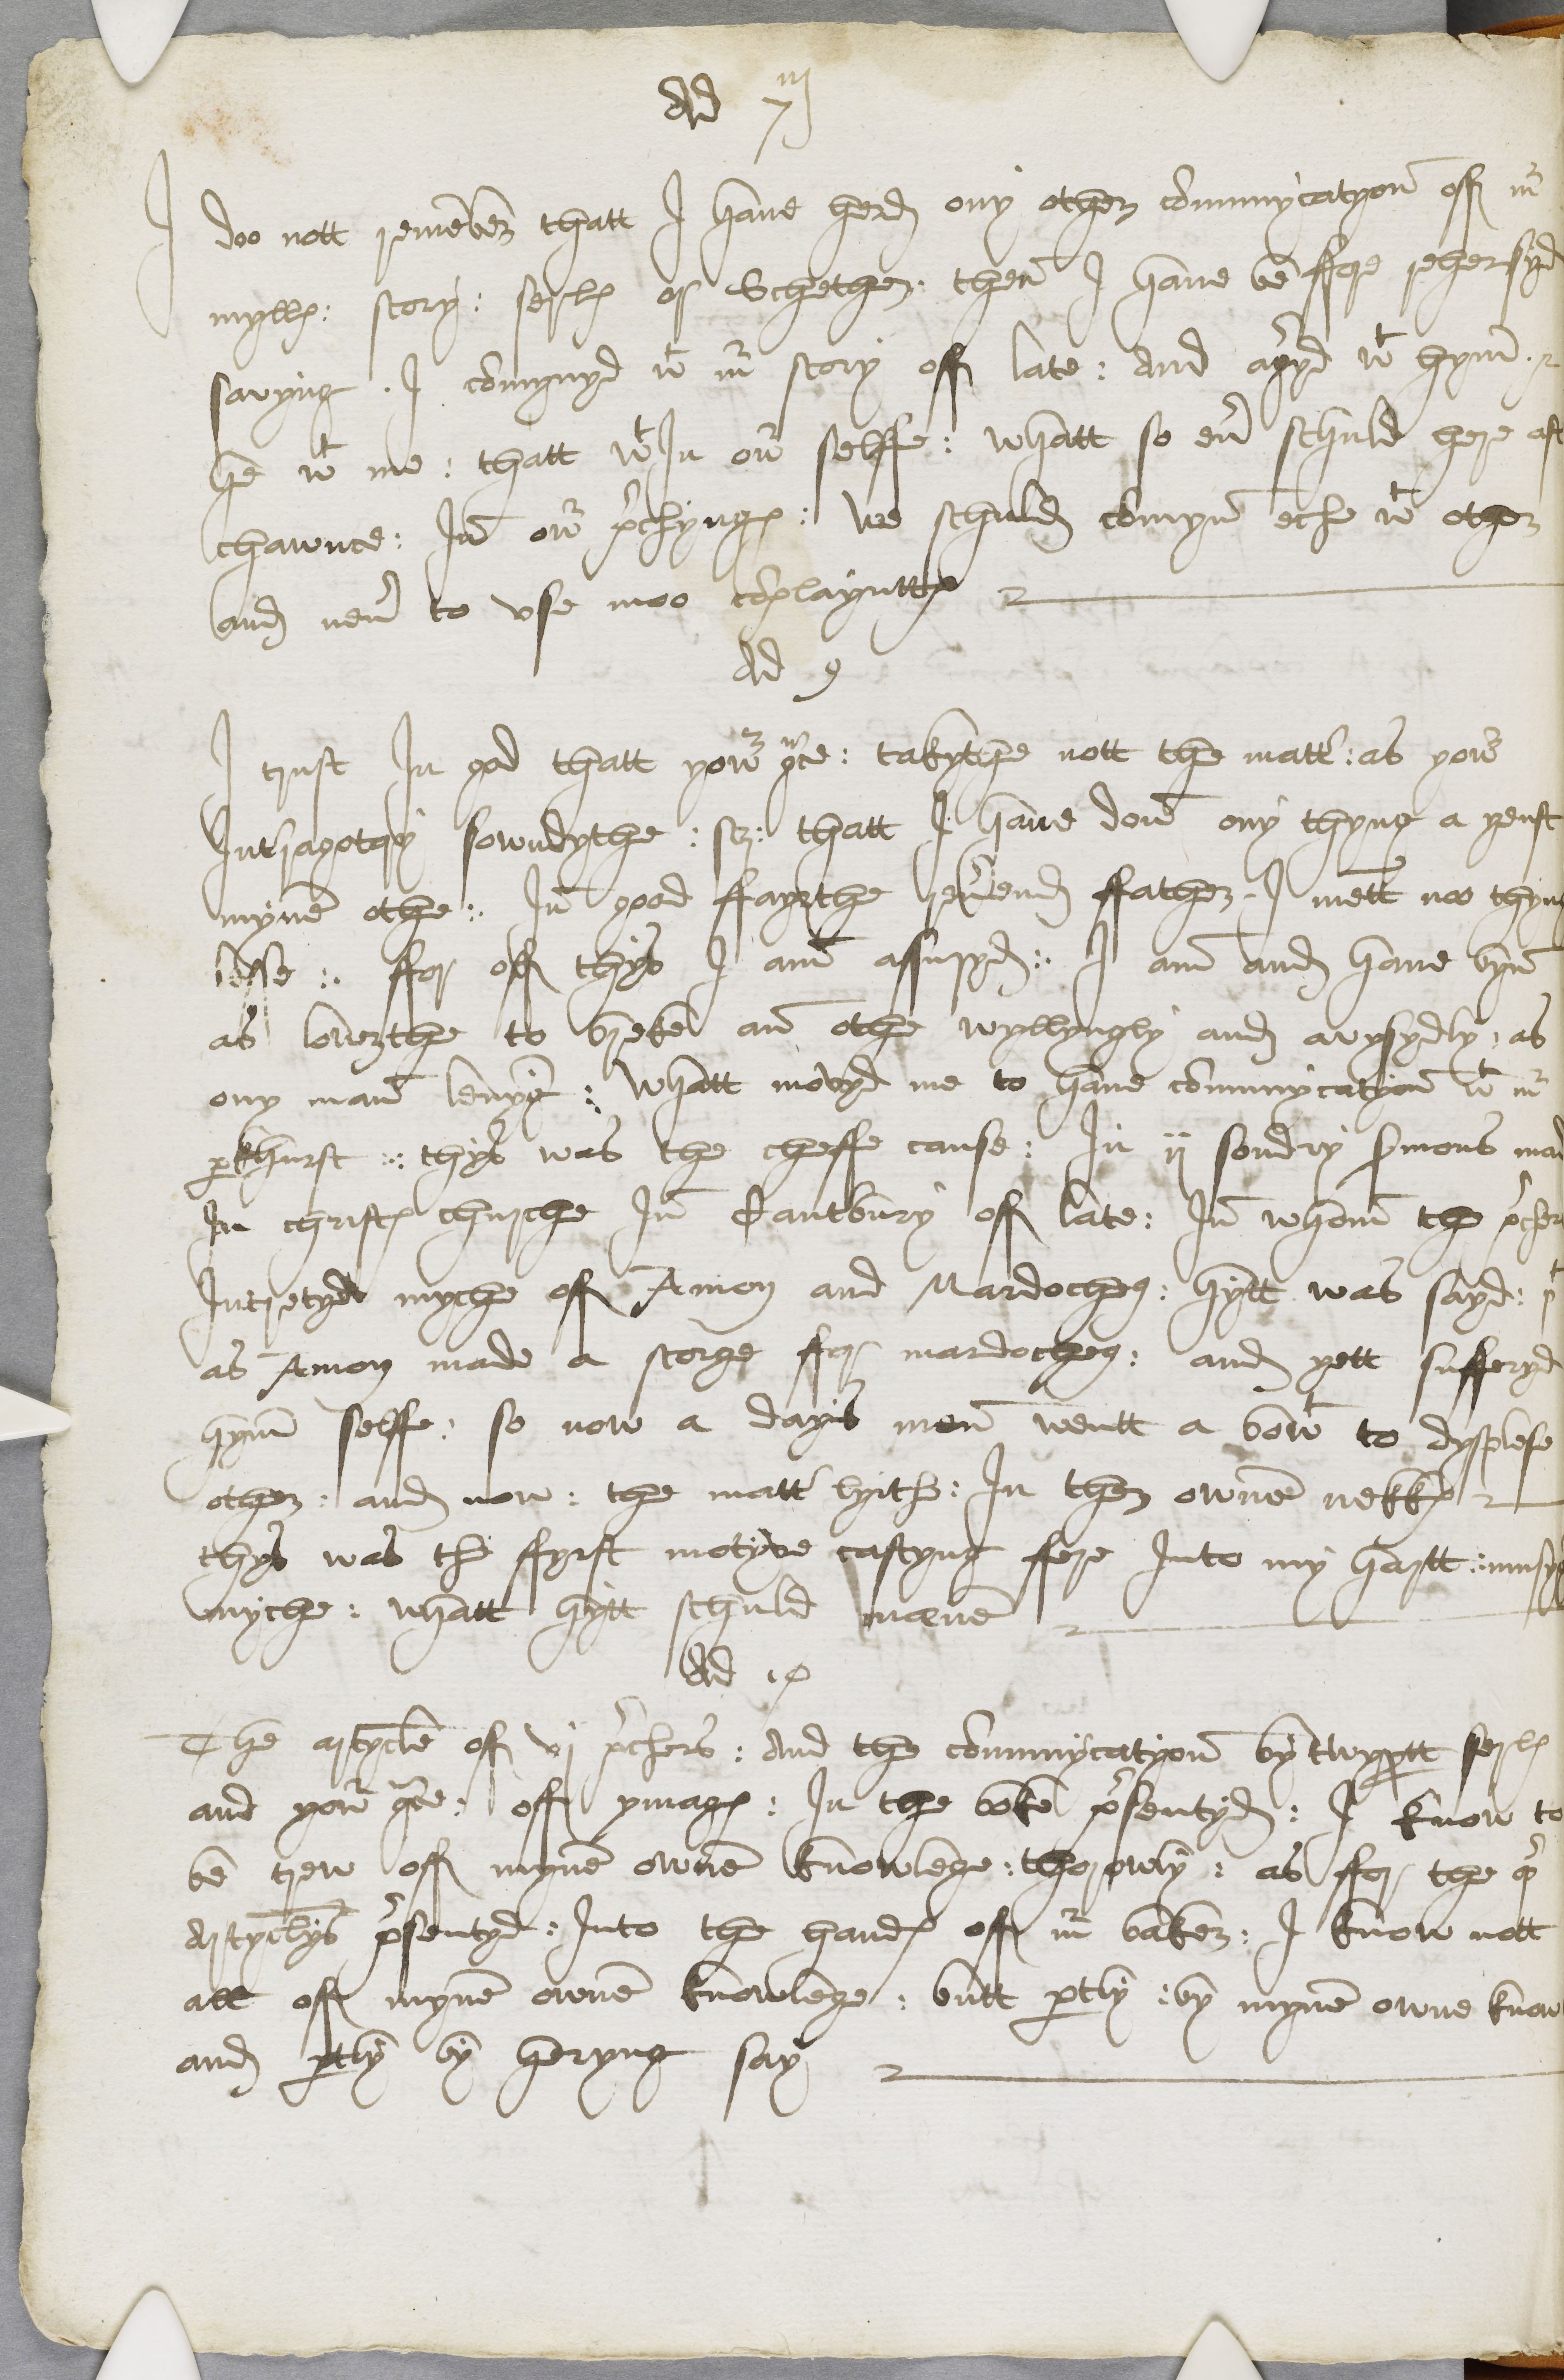 Ad 7
I doo nott remēber thatt I haue herd ony other cōmunycatyon off mr
mylls: story: serls or Schether: then I haue be ffore rehersyd
savyng. I comynyd wt mr story off late: And agryd wt hym
he wt me: thatt wt In owr selffe: Whatt so eur schuld here aft
chawnce: In owr pchyngs: We schuld comyn eche wt other
and neur to vse moo coplayntts
Ad 9
I trust In god thatt yowr gce: takythe nott the matt: as yowr
Intragotory sowndythe: sz: thatt I haue don ony thyng a yenst
myne othe: In good ffaythe reurend ffather I mett noo thyng
lesse: ffor off thys I am assuryd: I am and haue byn
as lowthe to breke an othe wyllyngly and avysydly: as
ony man levyg: Whatt movyd me to haue cōmunycatyon wt mr
pkhurst: thys was the cheffe cause: In ij sondry smons mad
In christs churche In Cantbury off late: In whom the pcher
Intretyd myche off Amon and Mardocheg: hytt was sayd: pt
as Amon made a storge ffor mardocheg: and yett sufferyd
hym selffe: so now a days men wentt a bowt to dysplese
other: and now: the matt lyith: In ther owne nekks
thys was the ffyrst motyve castyng ffere Into my hartt: musyg
myche: whatt hytt schuld mæne
Ad 10
The artycle off vj pchers: And the cōmunycatyon bytwyxtt serls
and yowr gce: off ymags: In the boke psentyd: I know to
be trew off myne owne knowlege: thorowly: as ffor the or
Artyclys psentyd: Into the hands off mr baker: I know nott
all off myne owne knowlege: butt ptly: by myne owne know
and ptly by heryng say